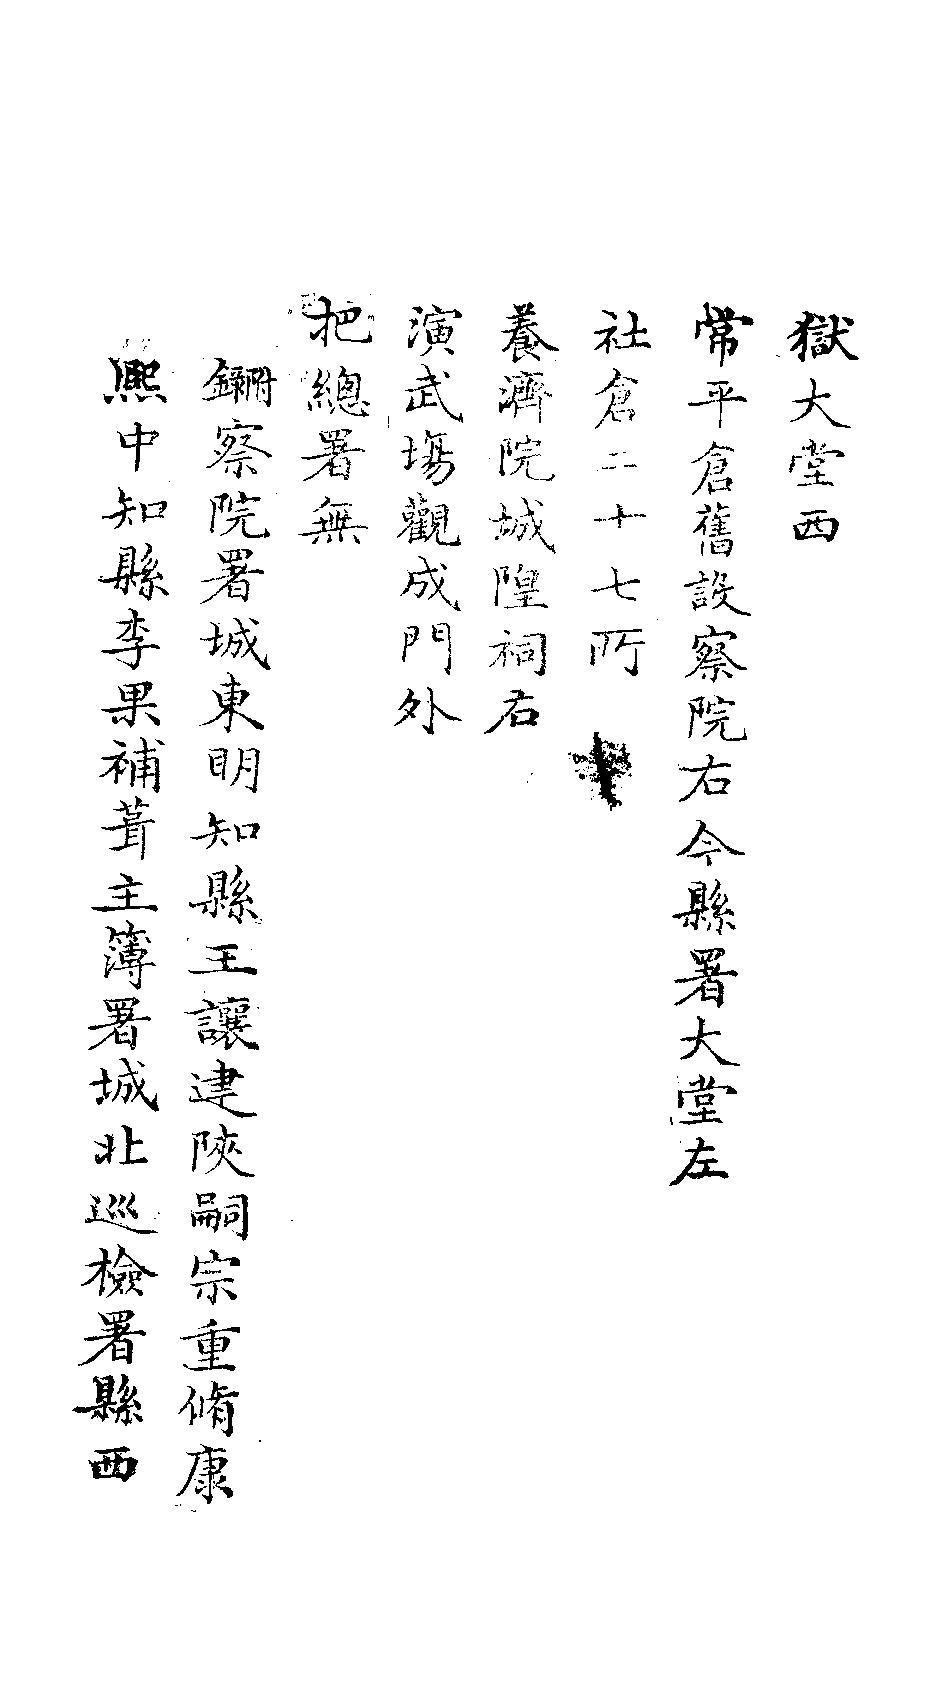 獄大堂西
常平倉舊設察院右今縣署大堂左
社倉二十七所
養濟院城隍祠右
演武塲觀成門外
把總署無
附錄察院署城東明知縣王讓建陝嗣宗重脩康
熈中知縣李果補葺主簿署城北巡檢署縣西